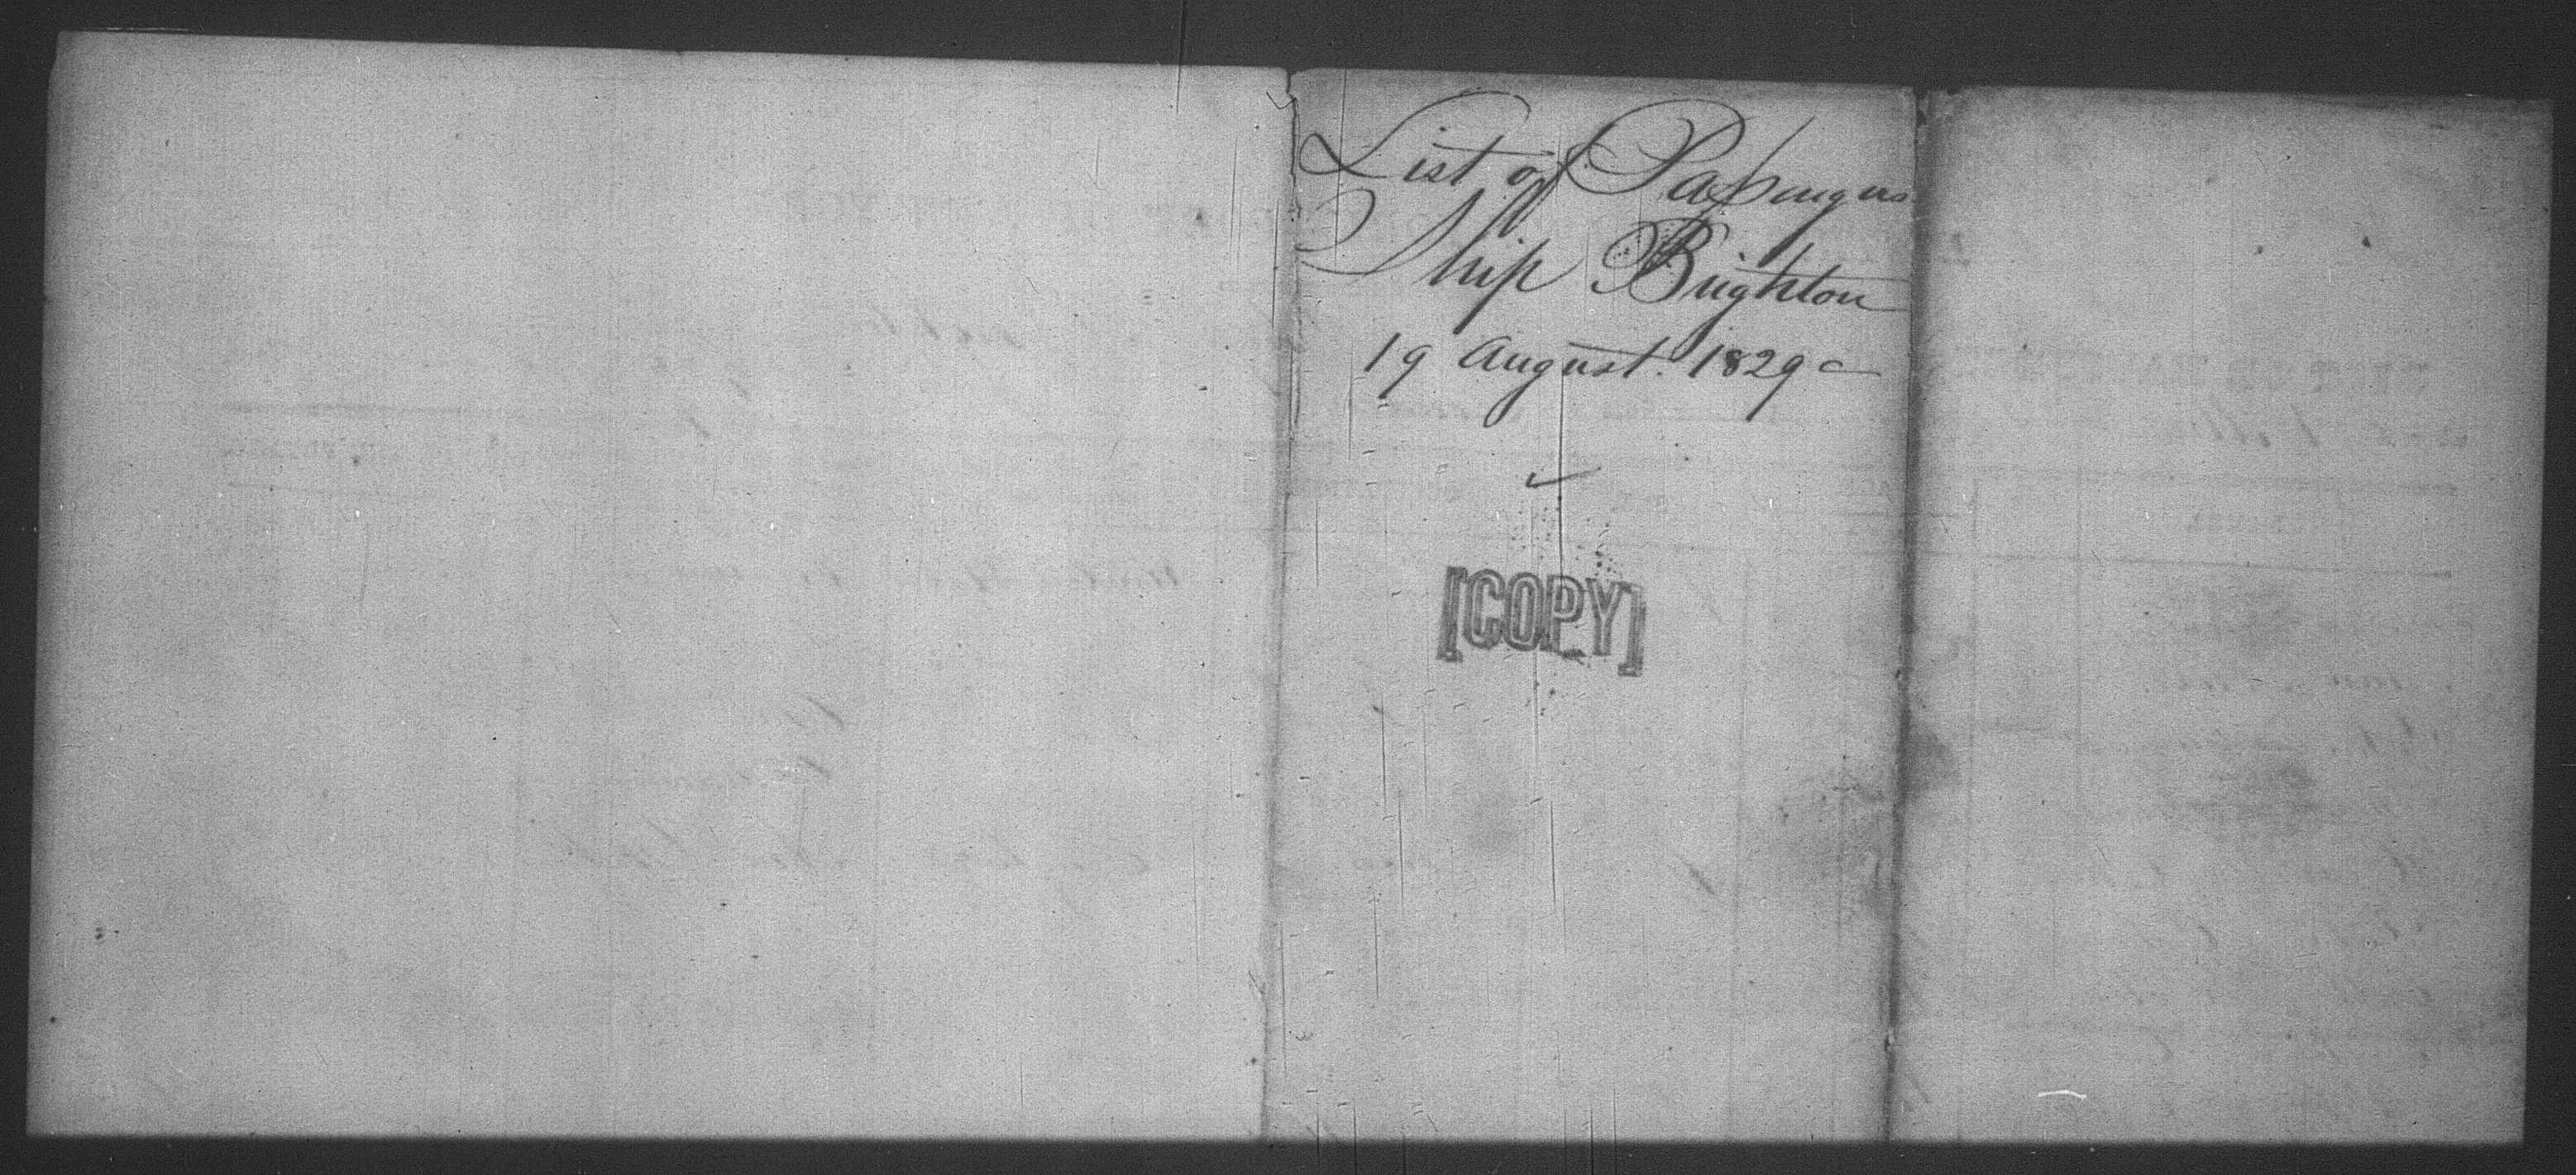 List of Passengers
Ship Brighton
19 August. 1829
[COPY]